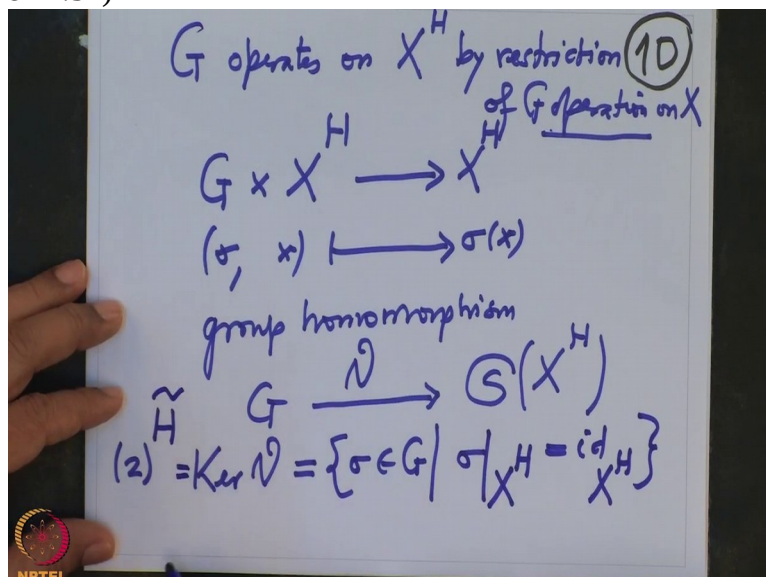 G operates on X^H by restriction 10
of G operation on X
G × X^H ⟶ X^H
(σ, x) ⟼ σ(x)
group homomorphism
G ⟶^ϑ 𝔖(X^H)
(2) H̃ = Ker ϑ = {σ ∈ G | σ|_{X^H} = id_{X^H}}
NPTEL